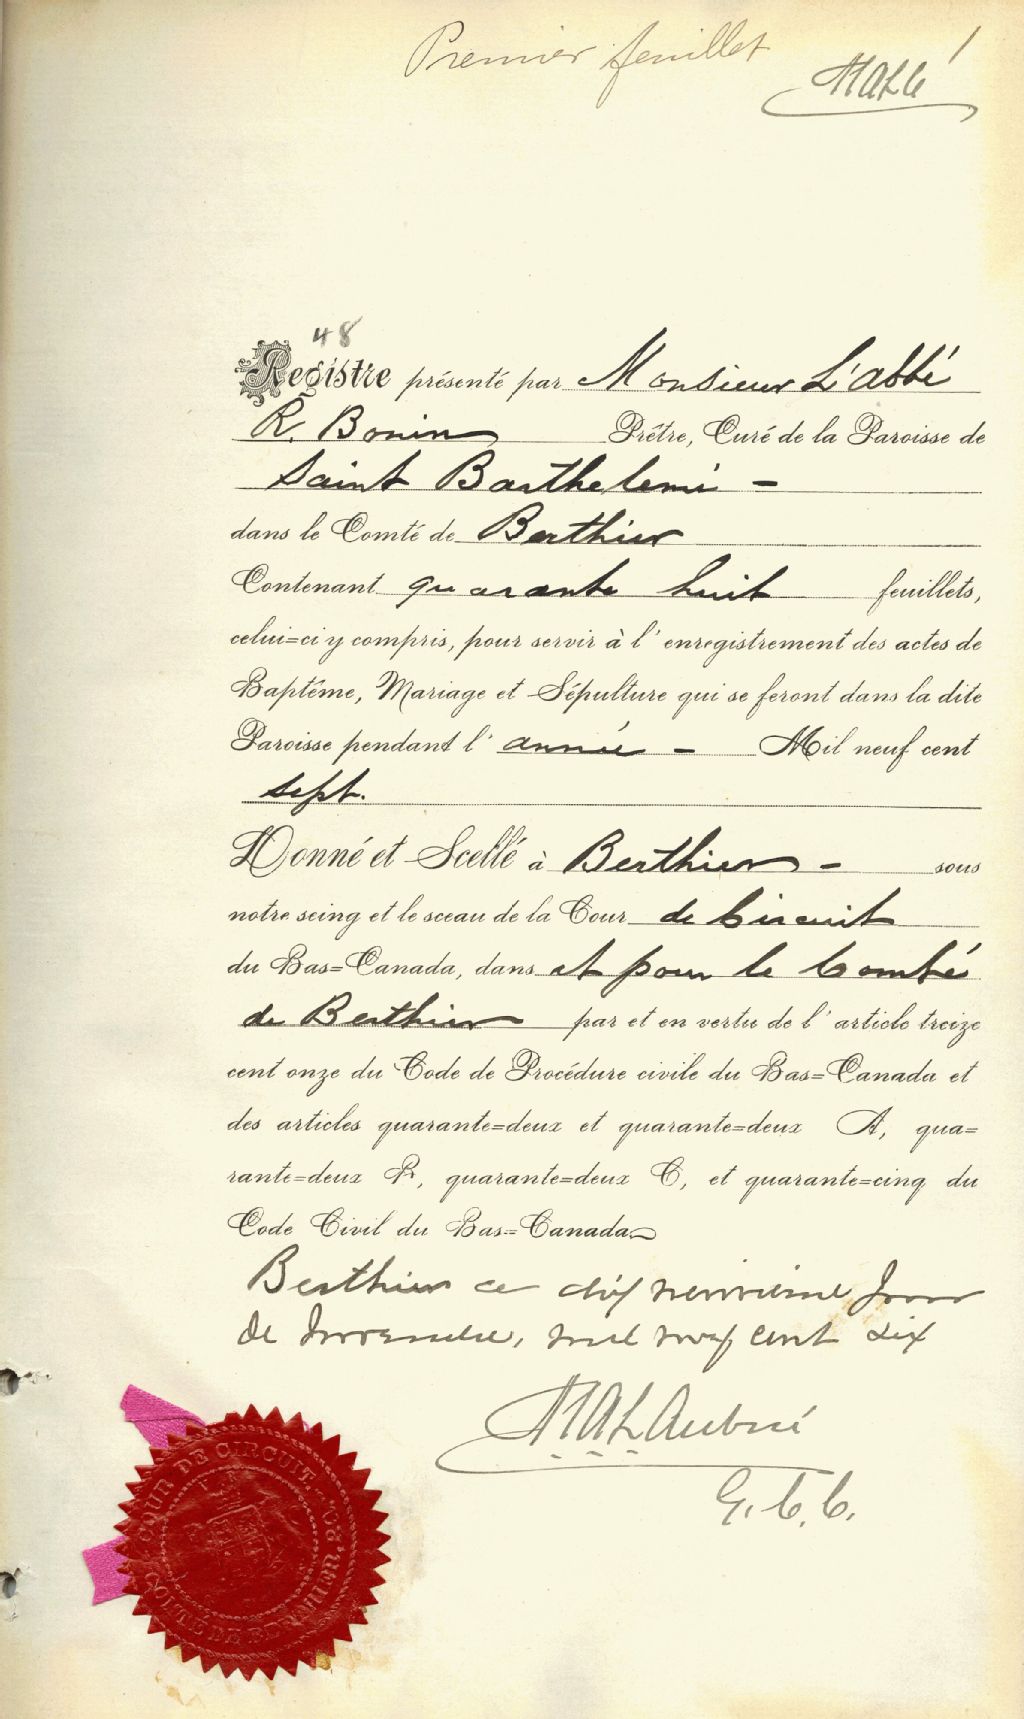 Premier feuillet
1
48
Registre présenté par Monsieur L'abbé
R. Bonin Prêtre, Curé de la Paroisse de
Saint Barthelemi -
dans le Comté de Berthier
Contenant quarante huit feuillets,
celui=ci y compris, pour servir à l'enregistrement des actes de
Baptême, Mariage et Sépulture qui se feront dans la dite
Paroisse pendant l'année - Mil neuf cent
sept.
Donné et Scellé à Berthier - sous
notre seing et le sceau de la Cour de Circuit
du Bas=Canada, dans et pour le Comté
de Berthier par et en vertu de l'article treize
cent onze du Code de Procédure civile du Bas=Canada et
des articles quarante=deux et quarante=deux A, qua=
rante=deux B, quarante=deux C, et quarante=cinq du
Code Civil du Bas=Canada
Berthier ce dix neuvième Jour
de novembre, mil neuf cent six
Aubué
G. C. C.
COUR DE CIRCUIT